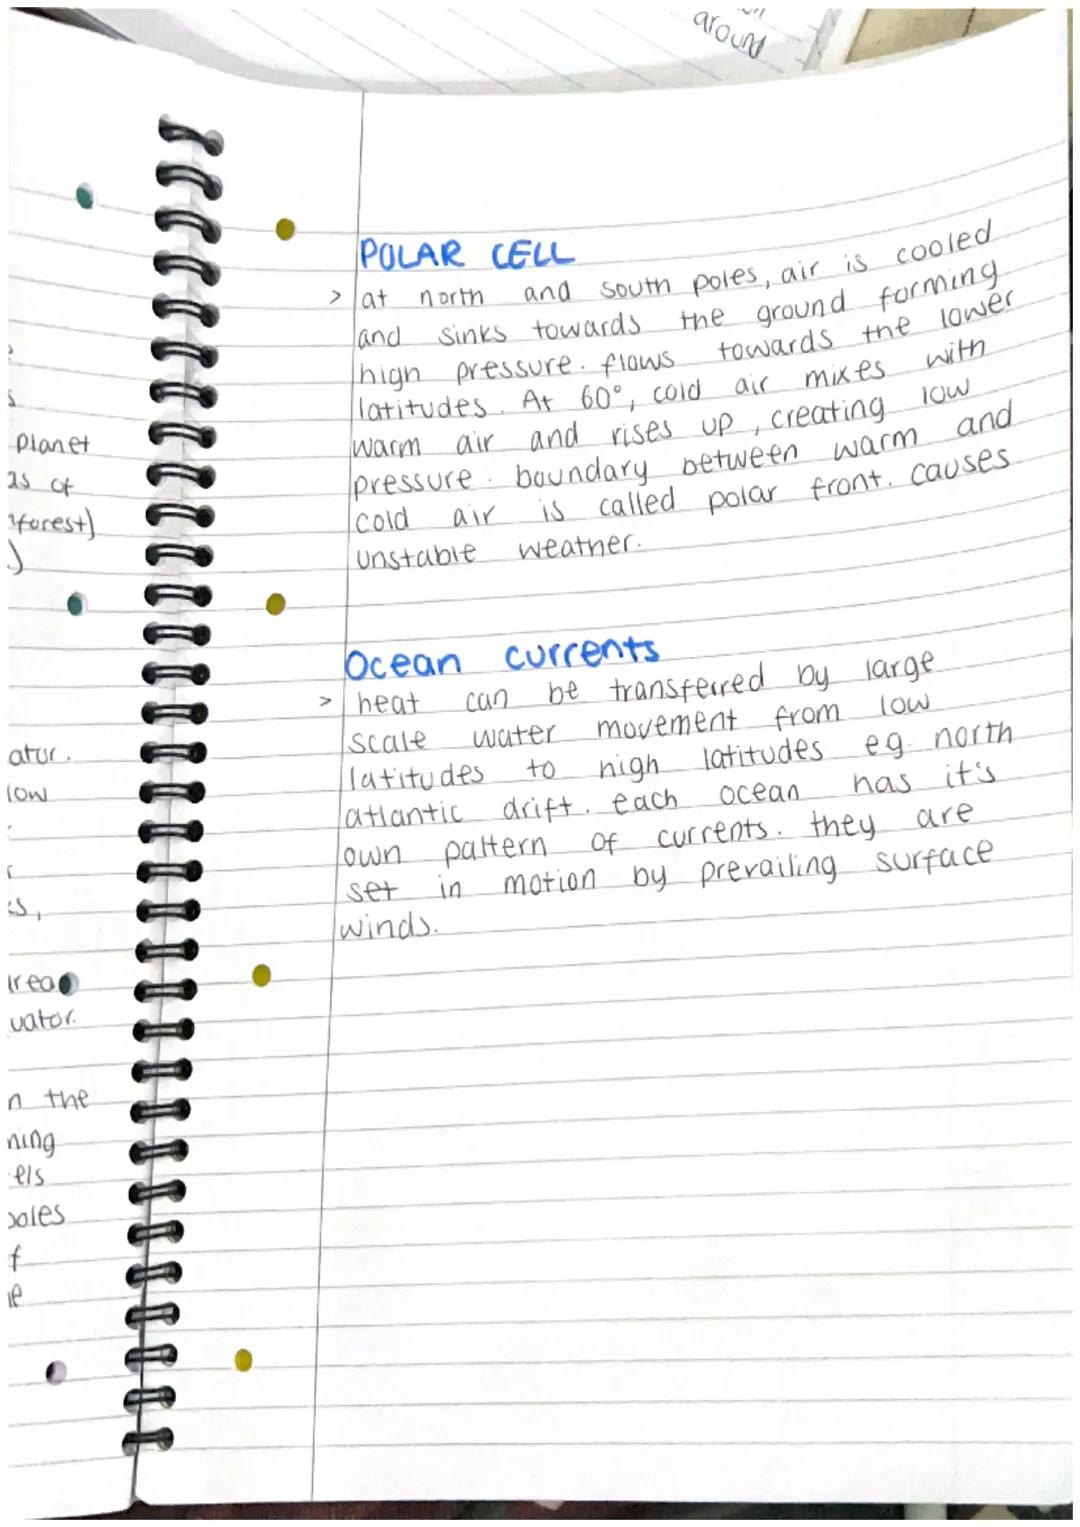 around
POLAR CELL
> at north and south poles, air is cooled
and sinks towards the ground forming
high pressure. flows towards the lower
latitudes. At 60°, cold air mixes with
warm air and rises up, creating low
pressure. boundary between warm and
cold air is called polar front. causes
unstable weather.
Ocean currents
> heat can be transferred by large
scale water movement from low
latitudes to high latitudes eg. north
atlantic drift. each ocean has it's
own pattern of currents. they are
set in motion by prevailing surface
winds.
planet
as of
forest)
ator.
low
area
uator.
n the
ning
els
poles
f